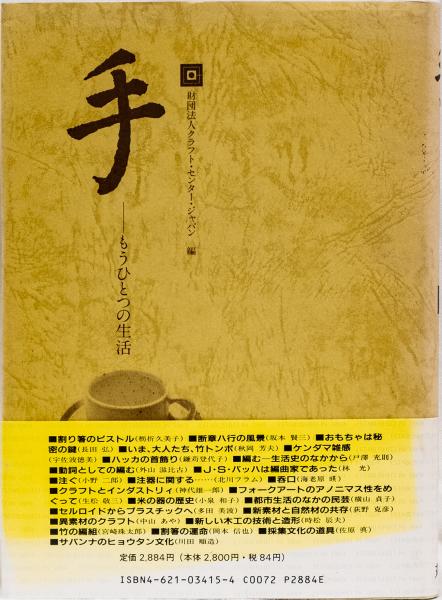 手
——もうひとつの生活
財団法人クラフト・センター・ジャパン 編
■割り箸のピストル(栃折久美子)■断章ハ行の風景(坂本 賢三)■おもちゃは秘
密の鍵(長田 弘)■いま、大人たち、竹トンボ(秋岡 芳夫)■ケンダマ雑感
(宇佐波徳美)■ハッカの首飾り(鎌苅登代子)■編む—生活史のなかから(戸澤 充則)
■動詞としての編む(外山 滋比古)■J・S・バッハは編曲家であった(林 光)
■注ぐ(小野 二郎)■注器に関する……(北川フラム)■呑口(海老原 暎)
■クラフトとインダストリィ(神代雄一郎)■フォークアートのアノニマス性をめ
ぐって(生松 敬三)■米の器の歴史(小泉 和子)■都市生活のなかの民芸(横山 貞子)
■セルロイドからプラスチックへ(多田 美波)■新素材と自然材の共存(荻野 克彦)
■異素材のクラフト(中山 あや)■新しい木工の技術と造形(時松 辰夫)
■竹の編組(宮崎珠太郎)■割箸の運命(岡本 信也)■採集文化の道具(佐原 眞)
■サバンナのヒョウタン文化(川田 順造)
定価 2,884円(本体 2,800円・税 84円)
ISBN4-621-03415-4 C0072 P2884E